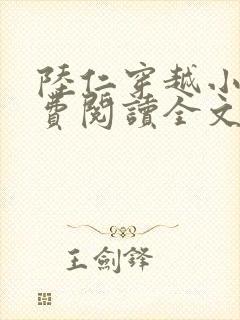 陸仁穿越小
費閱讀全文
王劍鋒